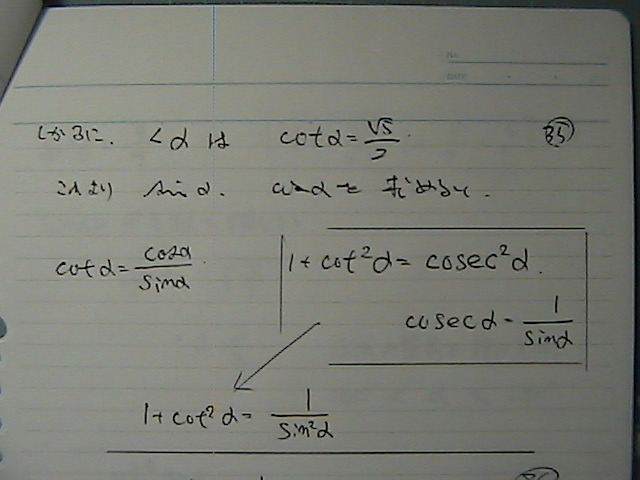 No.
DATE
しかるに. ∠αは cotα=√5/2. 35
これより sinα. cosαを求めると.
cotα=cosα/sinα. 1+cot²α=cosec²α.
cosecα=1/sinα
1+cot²α=1/sin²α